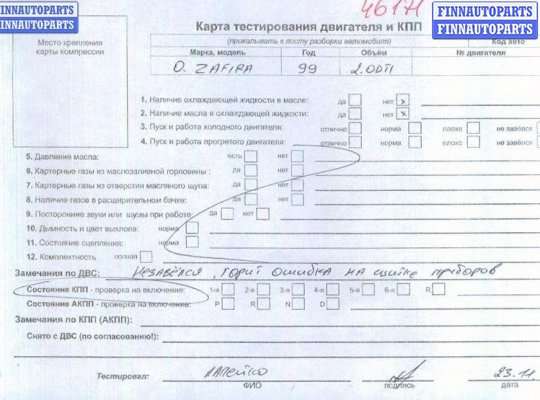 FINNAUTOPARTS
FINNAUTOPARTS
FINNAUTOPARTS
FINNAUTOPARTS
46171
Карта тестирования двигателя и КПП
(прикалывать к посту разборки автомобиля)
Код авто
Место крепления
карты компрессии
Марка, модель Год Объём № двигателя
O. ZAFIRA 99 2.0DTI
1. Наличие охлаждающей жидкости в масле: да нет
2. Наличие масла в охлаждающей жидкости: да нет
3. Пуск и работа холодного двигателя: отлично норма плохо не завёлся
4. Пуск и работа прогретого двигателя: отлично норма плохо не завёлся
5. Давление масла: есть нет
6. Картерные газы из маслозаливной горловины: да нет
7. Картерные газы из отверстия масляного щупа: да нет
8. Наличие газов в расширительном бачке: да нет
9. Посторонние звуки или шумы при работе: да нет
10. Дымность и цвет выхлопа: норма
11. Состояние сцепления: норма
12. Комплектность: полная
Замечания по ДВС: Незавёлся, горит ошибка на щитке приборов
Состояние КПП - проверка на включение: 1-я 2-я 3-я 4-я 5-я 6-я R
Состояние АКПП - проверка на включение: P R N D
Замечания по КПП (АКПП):
Снято с ДВС (по согласованию!):
Тестировал: 23.11.
ФИО подпись дата